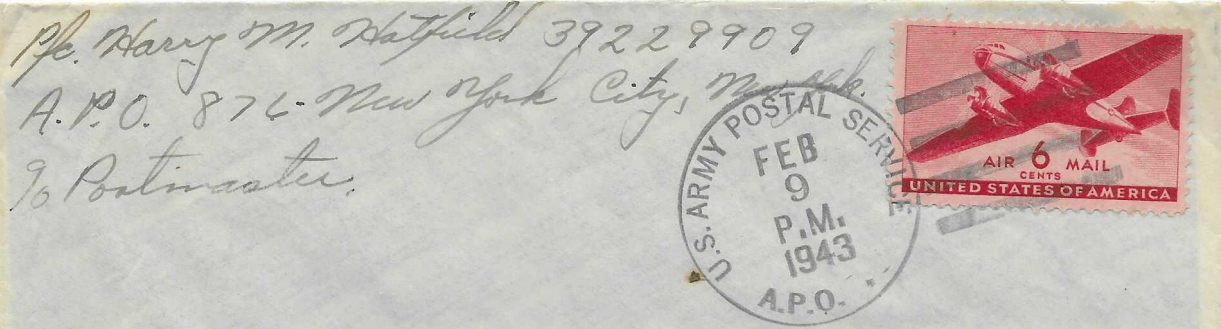 Pfc. Harry M. Hatfield 39229909
A.P.O. 876 - New York City, New York.
c/o Postmaster.
U.S. ARMY POSTAL SERVICE
FEB
9
P.M.
1943
A.P.O.
AIR 6 MAIL
CENTS
UNITED STATES OF AMERICA